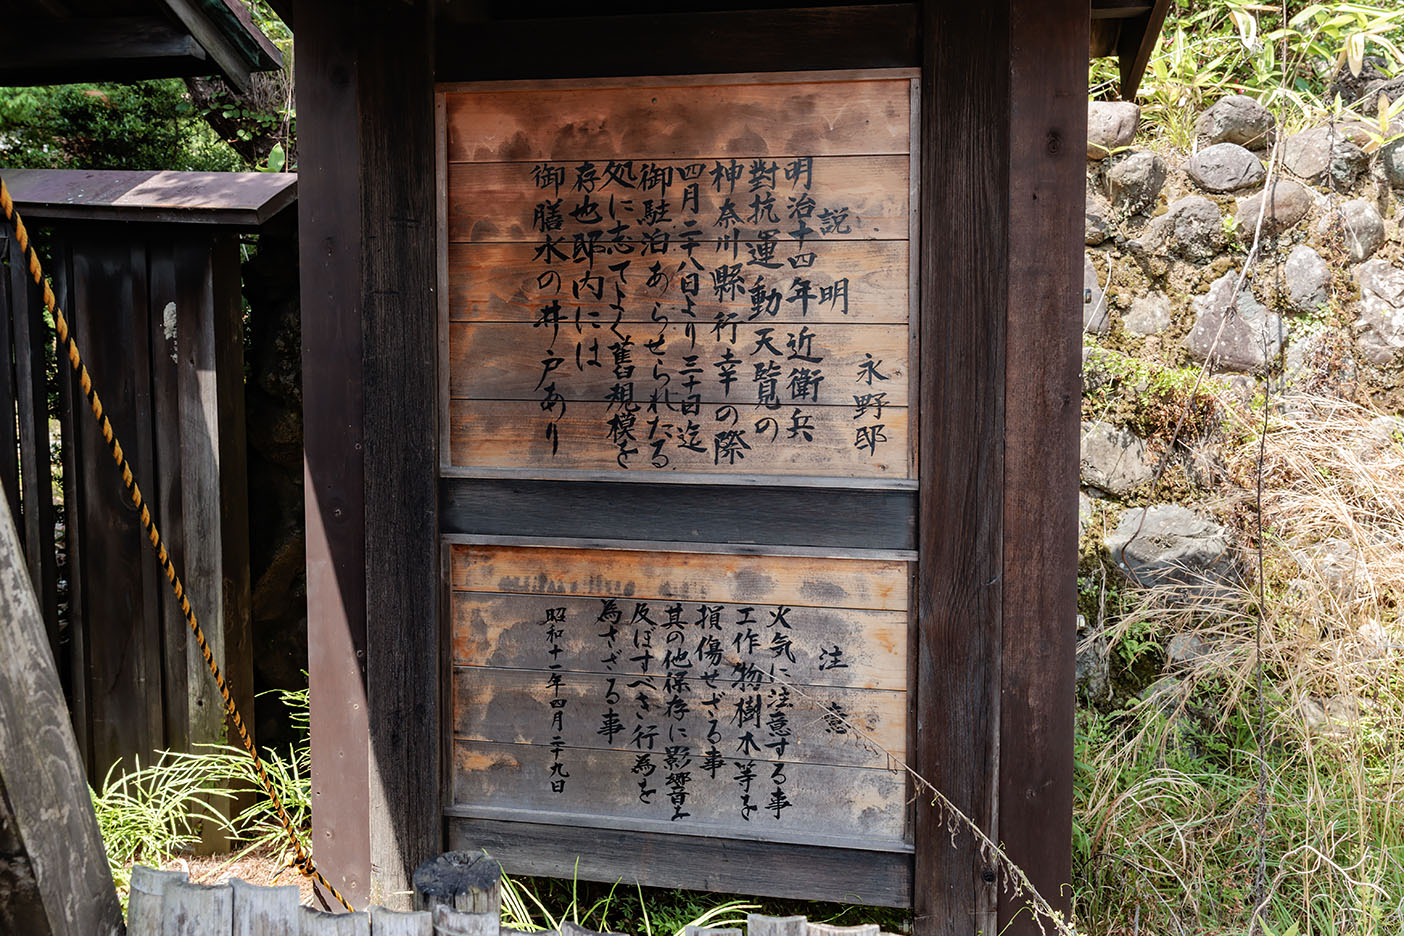 説明
永野邸
明治十四年近衛兵
對抗運動天覧の
神奈川縣行幸の際
四月二十八日より三十日迄
御駐泊あらせられたる
処に志てよく舊規模を
存也邸内には
御膳水の井戸あり
注意
火気に注意する事
工作物樹木等を
損傷せざる事
其の他保存に影響を
及ぼすべき行為を
為さざる事
昭和十一年四月二十九日